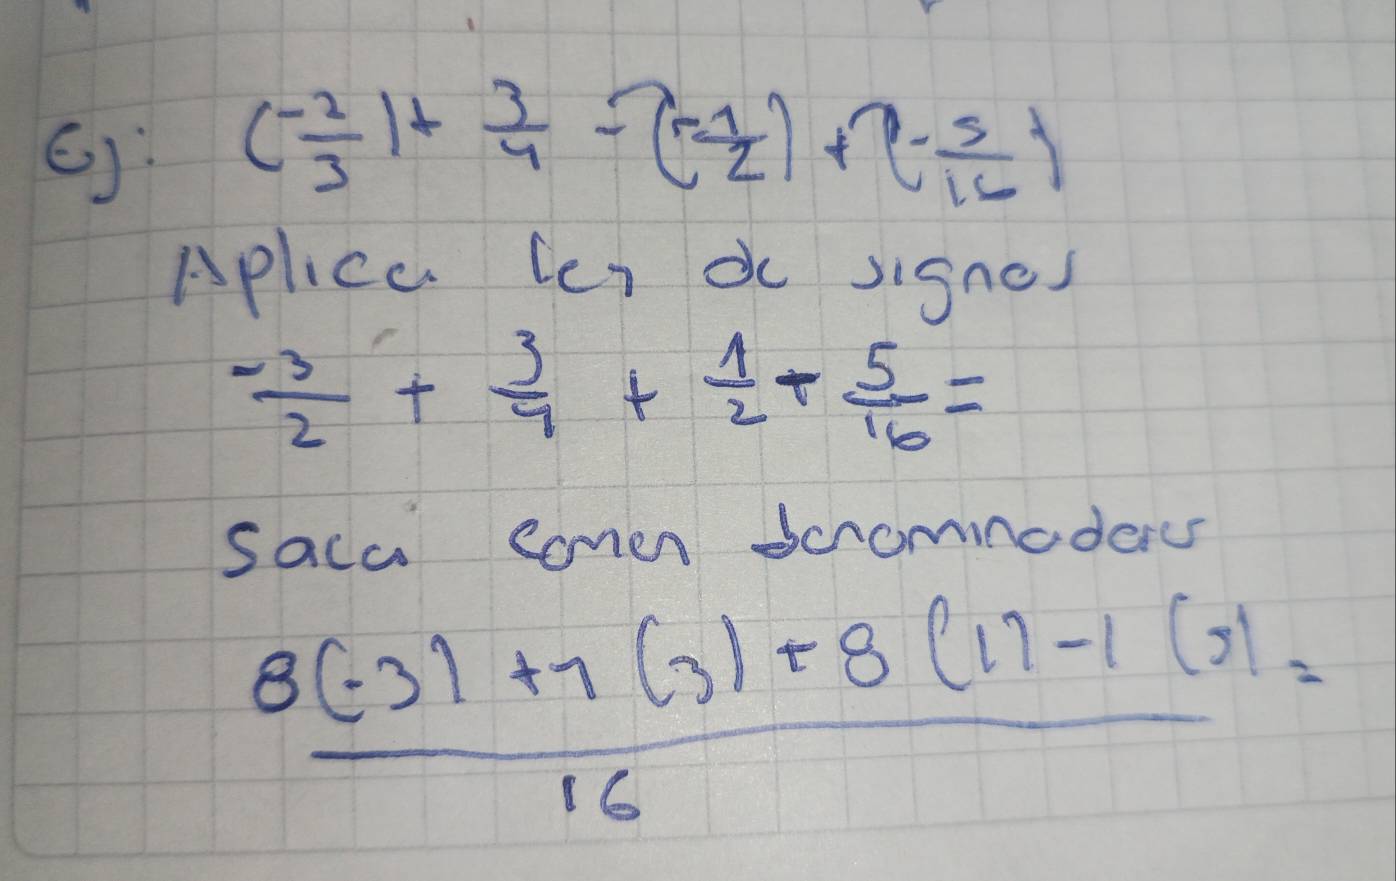 Ej: (-2/3) + 3/4 - (-1/2) + (-5/16)
Aplica ley de signos
-3/2 + 3/4 + 1/2 - 5/16 =
Saca comun denominadores
8(-3) + 4(3) + 8(1) - 1(5) =
16